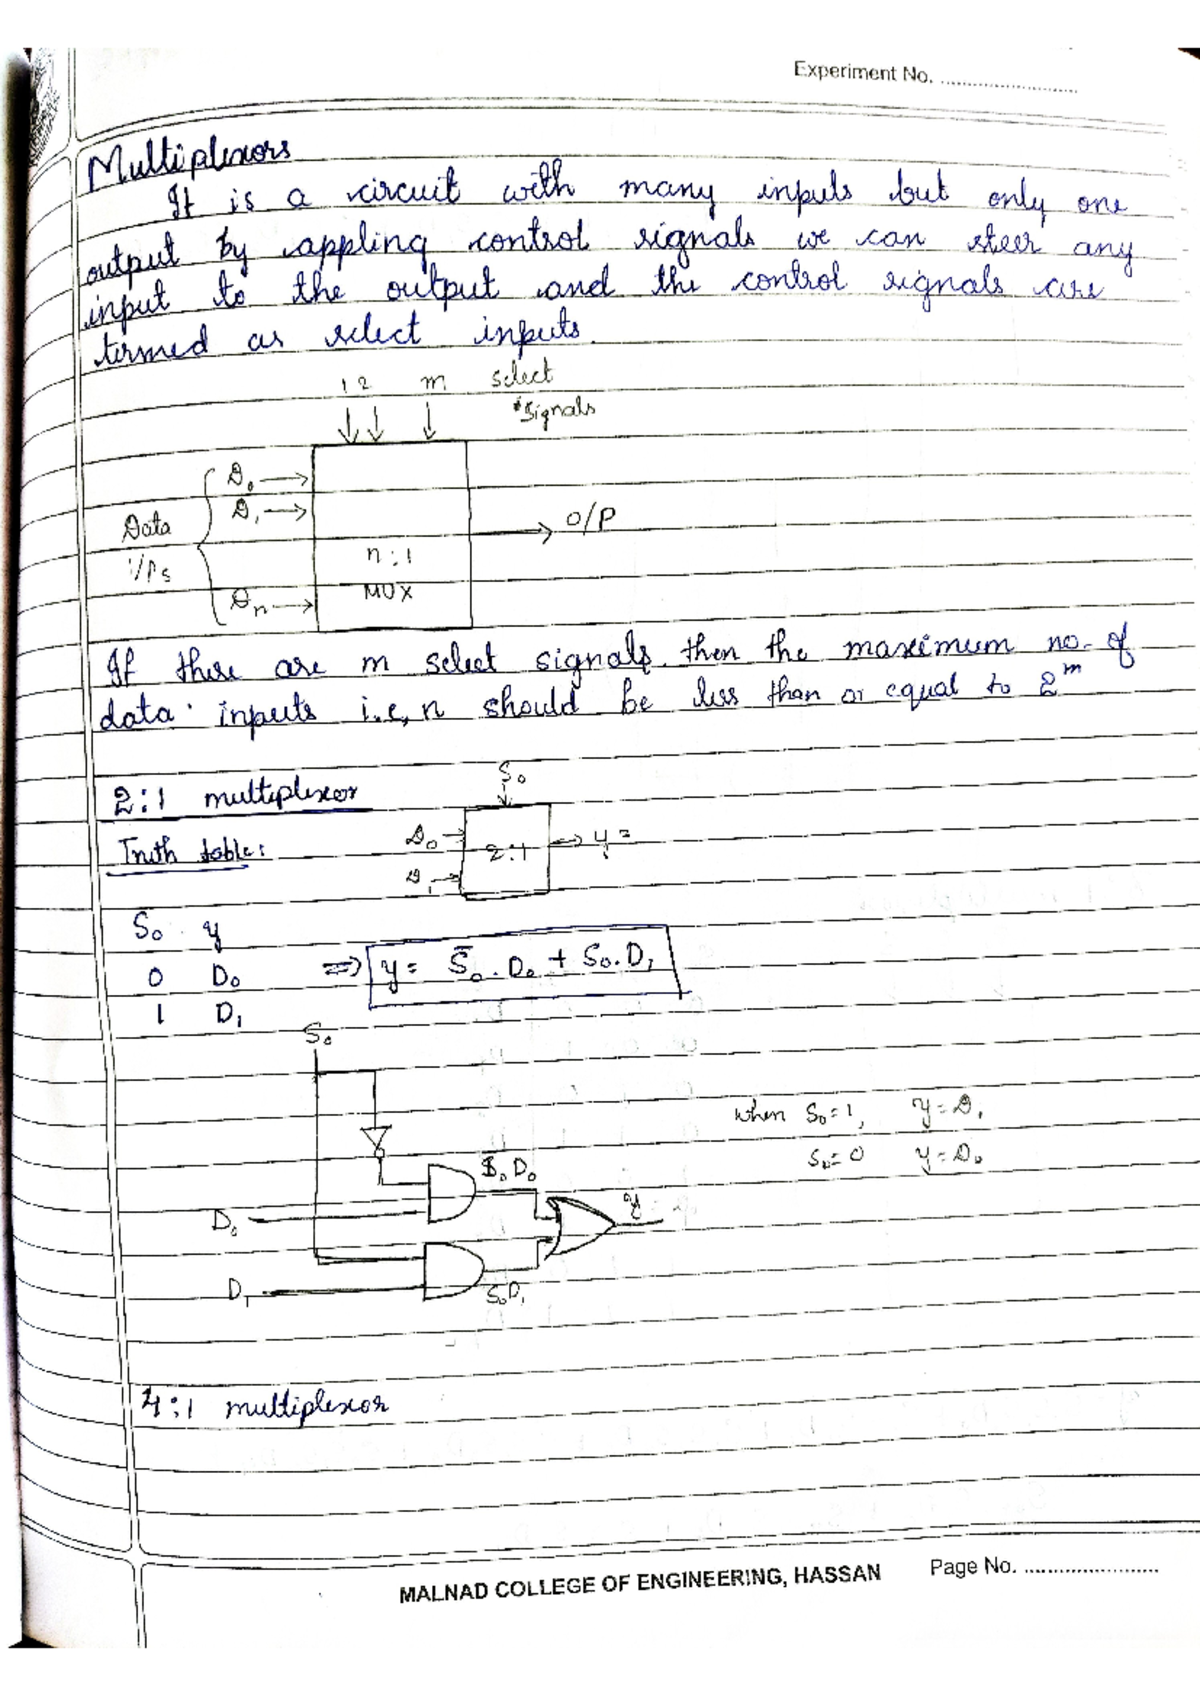 Experiment No. ........................
Multiplexors
It is a circuit with many inputs but only one
output by appling control signals we can steer any
input to the output and the control signals are
termed as select inputs.
1 2 m select
signals
D₀
D₁
Data
I/Ps
Dn
n:1
MUX
O/P
If there are m select signals then the maximum no. of
data inputs i.e, n should be less than or equal to 2ᵐ
2:1 multiplexor
S₀
Truth table:
D₀
D₁
2:1
y =
S₀ y
0 D₀
1 D₁
⇒ y = S̅₀.D₀ + S₀.D₁
S₀
when S₀=1, y=D₁
S₀=0 y=D₀
S̅₀D₀
D₀
y
D₁
S₀D₁
4:1 multiplexor
MALNAD COLLEGE OF ENGINEERING, HASSAN Page No. ........................